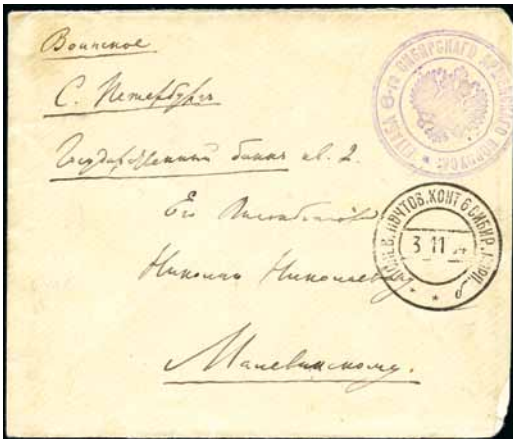 Воинское
С. Петербургъ
Государственный банкъ кв. 2.
Его
Николаю Николаевичу
Малевинскому.
ШТАБА 6-го СИБИРСКАГО АРМЕЙСКАГО КОРПУСА
ПОЧТОВ. КОНТ 6 СИБИР.
3 11